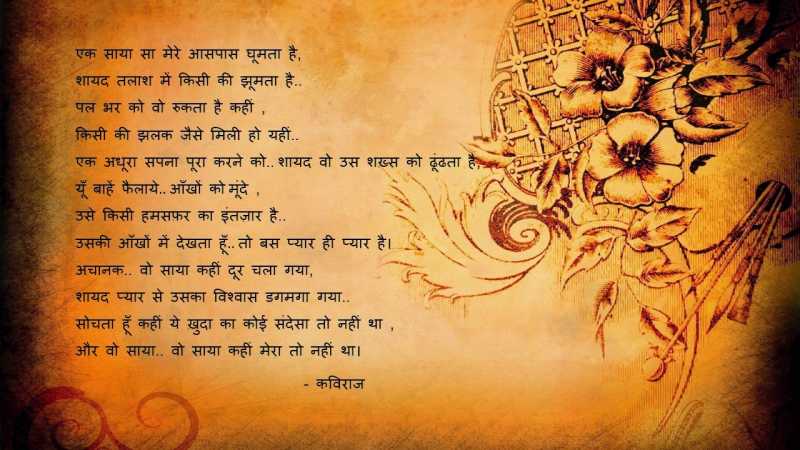 एक साया सा मेरे आसपास घूमता है,
शायद तलाश में किसी की झूमता है..
पल भर को वो रुकता है कहीं ,
किसी की झलक जैसे मिली हो यहीं..
एक अधूरा सपना पूरा करने को.. शायद वो उस शख़्स को ढूंढता है,
यूँ बाहें फैलाये.. आँखों को मूंदे ,
उसे किसी हमसफर का इंतज़ार है..
उसकी आँखों में देखता हूँ.. तो बस प्यार ही प्यार है।
अचानक.. वो साया कहीं दूर चला गया,
शायद प्यार से उसका विश्वास डगमगा गया..
सोचता हूँ कहीं ये खुदा का कोई संदेसा तो नहीं था ,
और वो साया.. वो साया कहीं मेरा तो नहीं था।
- कविराज